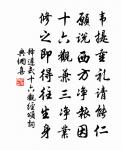 韦提垂礼请能仁
愿说西方净报因
十六观兼三净业
修之即得往生身
释遵式十六观经颂词
典阅集